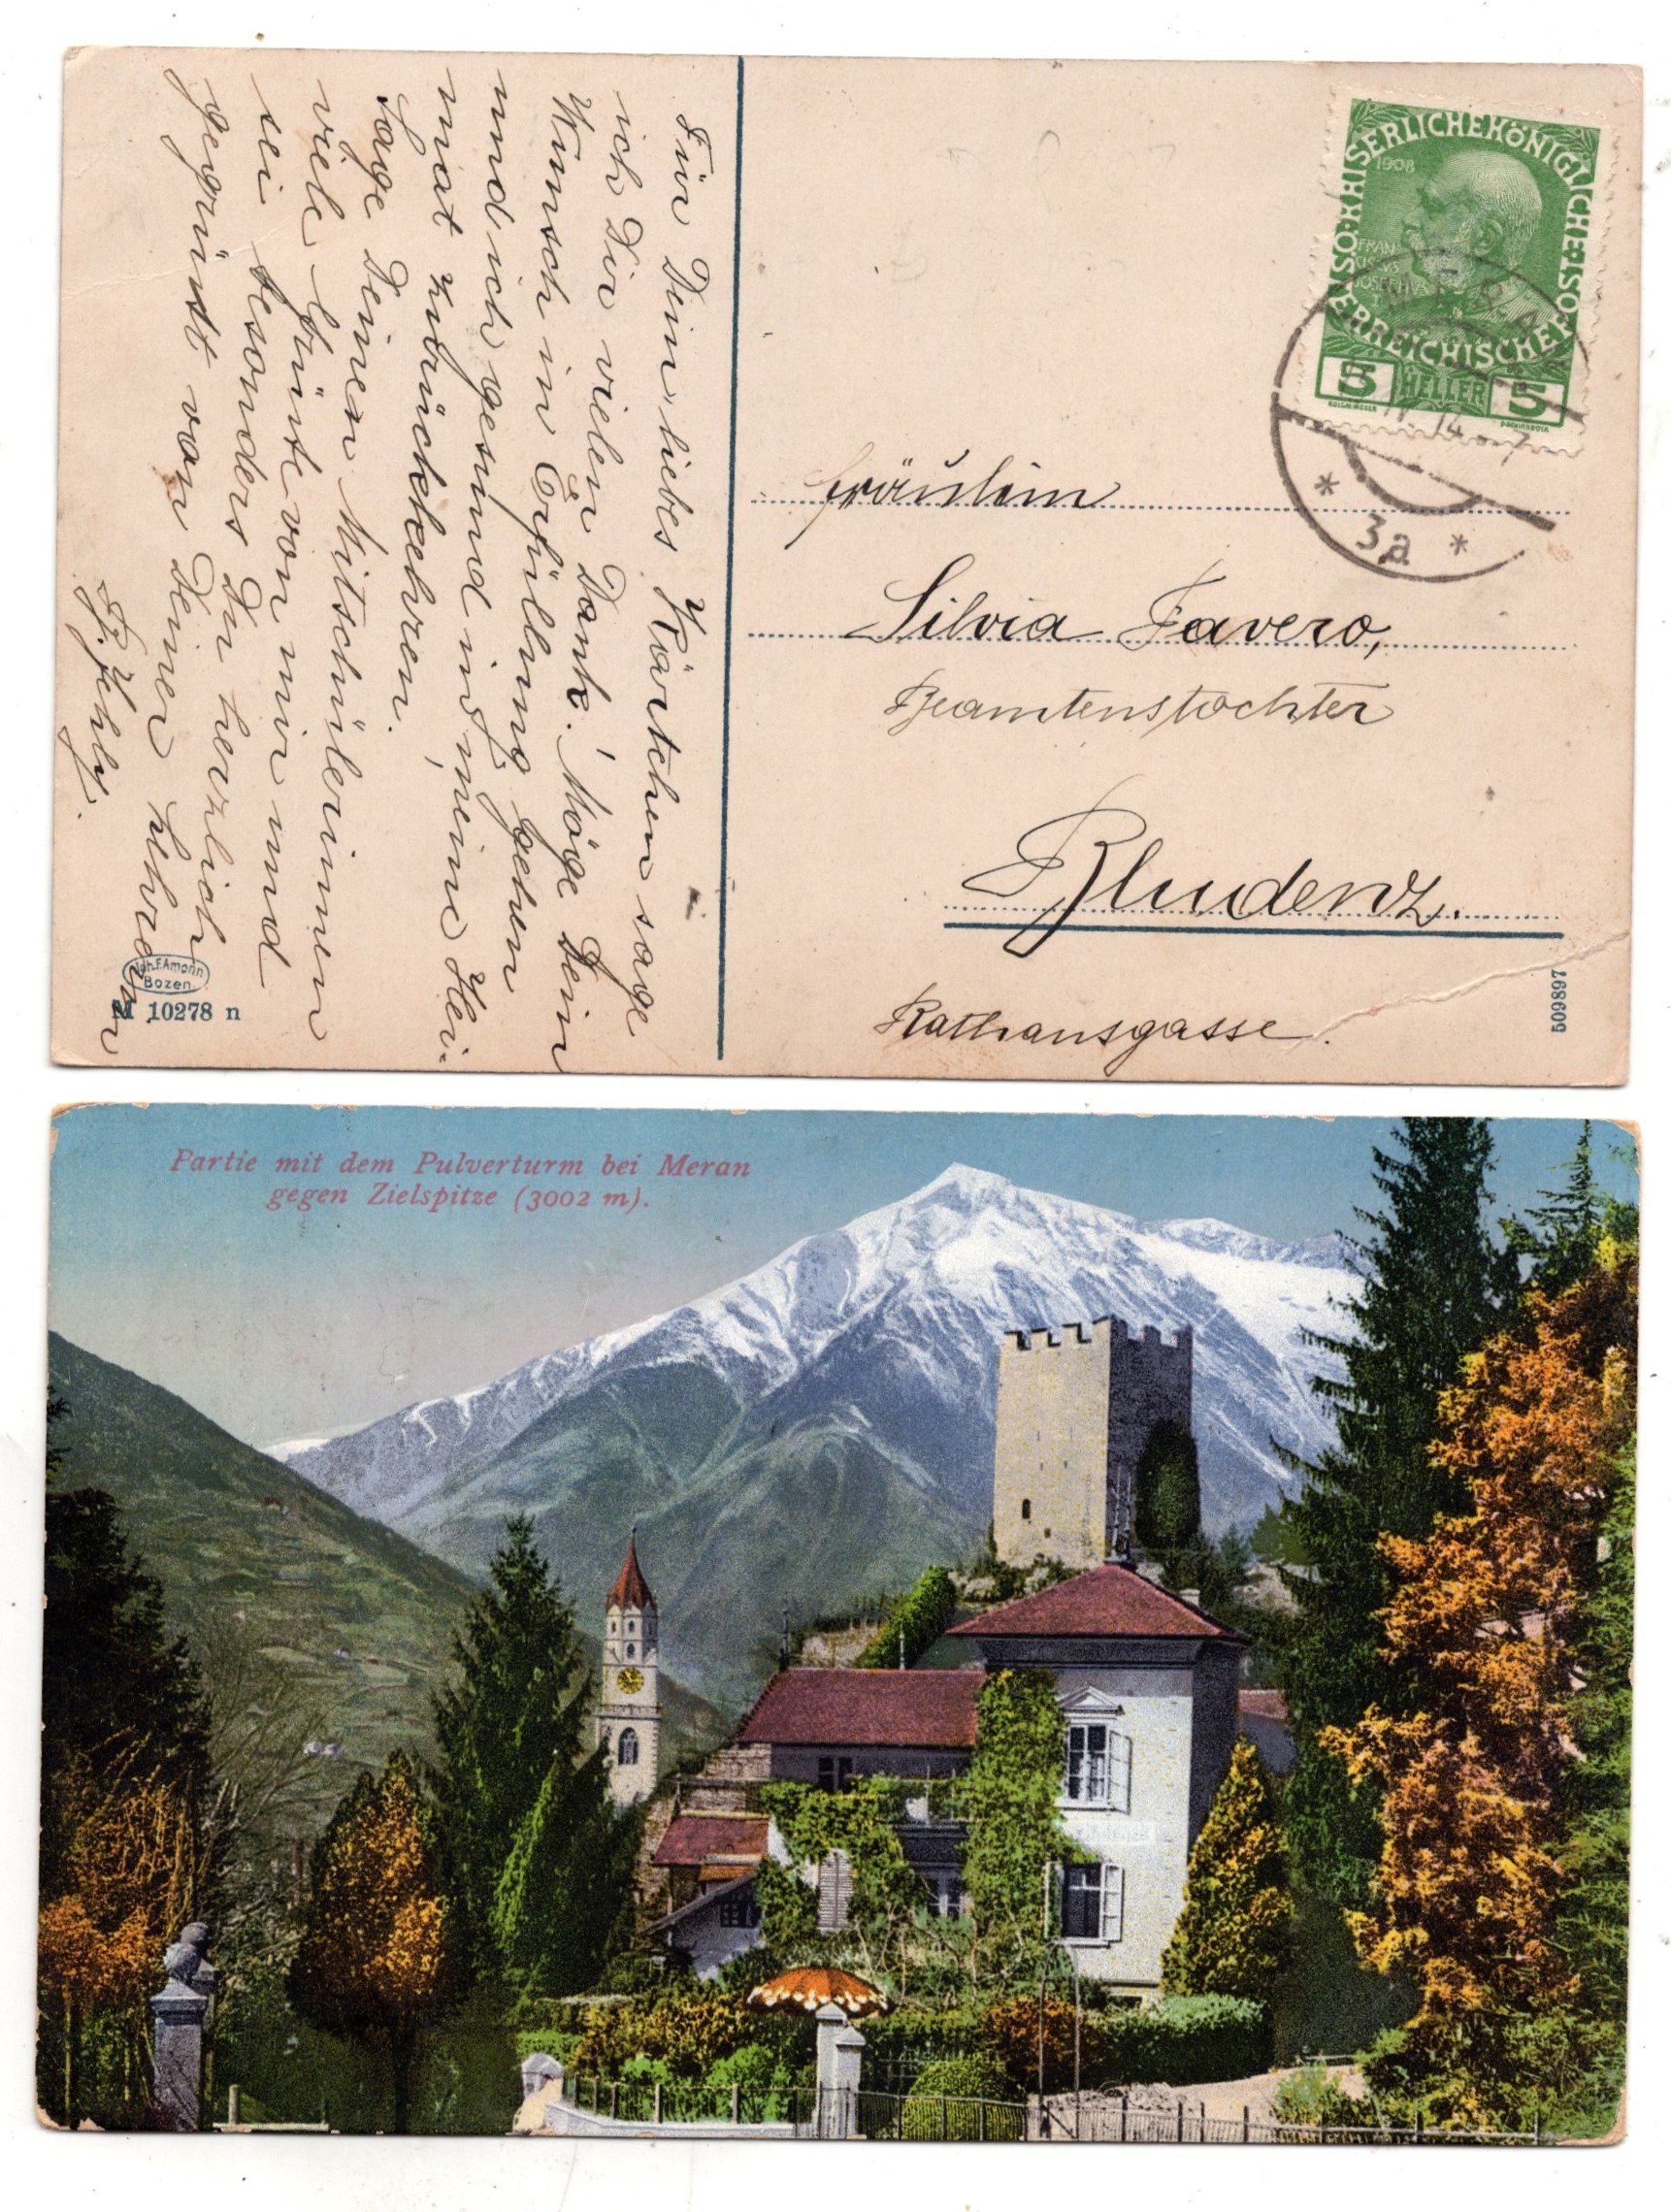 Für Dein liebes Kärtchen sage
ich Dir vielen Dank! Möge Dein
Wunsch in Erfüllung gehen
und ich gesund in meine Hei-
mat zurückkehren.
Sage Deinen Mitschülerinnen
viele Grüße von mir und
sei besonders Du herzlich
gegrüßt von Deiner Lehrerin
F. Jehly.
Joh. F. Amonn
Bozen
M 10278 n
KAISERLICHE KÖNIGLICHE ÖSTERREICHISCHE POST
1908
FRAN
CISCVS
IOSEPHVS
I
5 HELLER 5
KOLOMAN MOSER
MERAN
IV 14
* 3a *
Fräulein
Silvia Favero,
Beamtenstochter
Bludenz.
Rathausgasse.
509897
Partie mit dem Pulverturm bei Meran
gegen Zielspitze (3002 m).